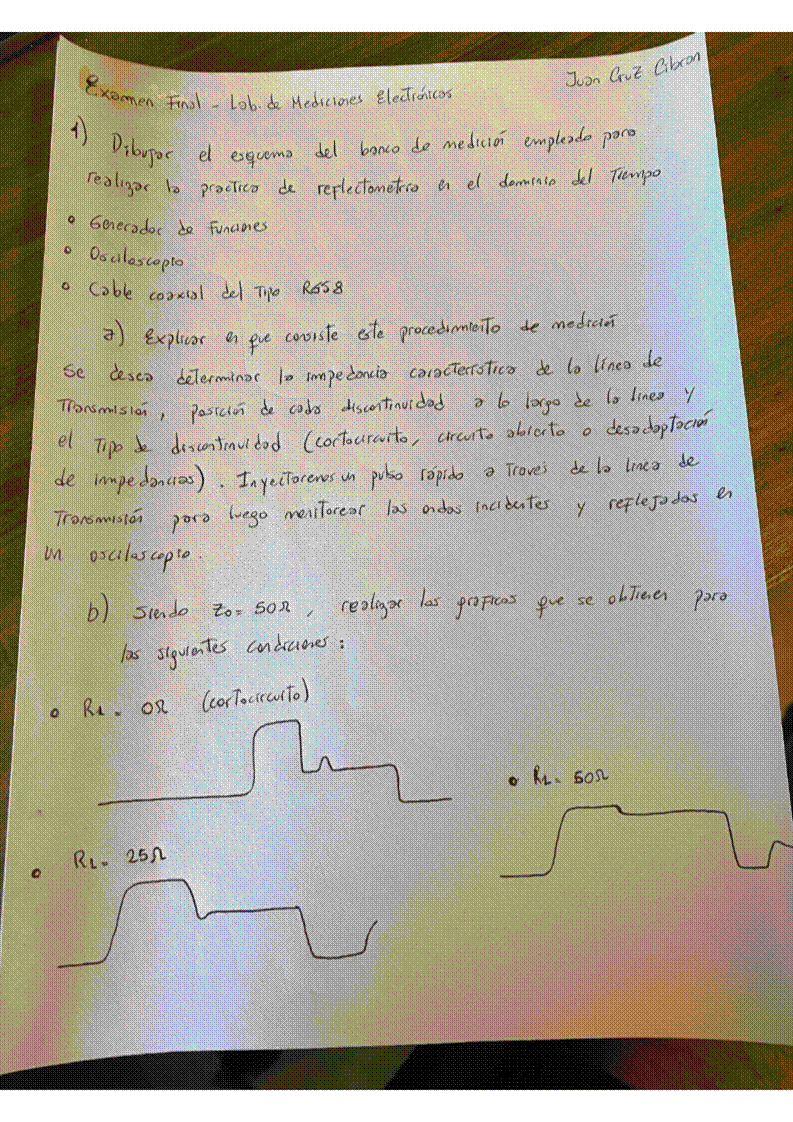 Juan Cruz Cibran
Examen Final - Lab. de Mediciones Electrónicas
1) Dibujar el esquema del banco de medición empleado para
realizar la practica de reflectometria en el dominio del Tiempo
• Generador de funciones
• Osciloscopio
• Cable coaxial del Tipo RG58
a) Explicar en que consiste este procedimiento de medición
Se desea determinar la impedancia caracteristica de la línea de
Transmisión, posición de cada discontinuidad a lo largo de la linea y
el Tipo de discontinuidad (cortocircuito, circuito abierto o desadaptación
de impedancias). Inyectaremos un pulso rápido a Traves de la linea de
Transmisión para luego monitorear las ondas incidentes y reflejadas en
un osciloscopio.
b) Siendo Zo= 50Ω, realizar las graficas que se obtienen para
las siguientes condiciones:
• RL = 0Ω (cortocircuito)
• RL = 50Ω
• RL = 25Ω